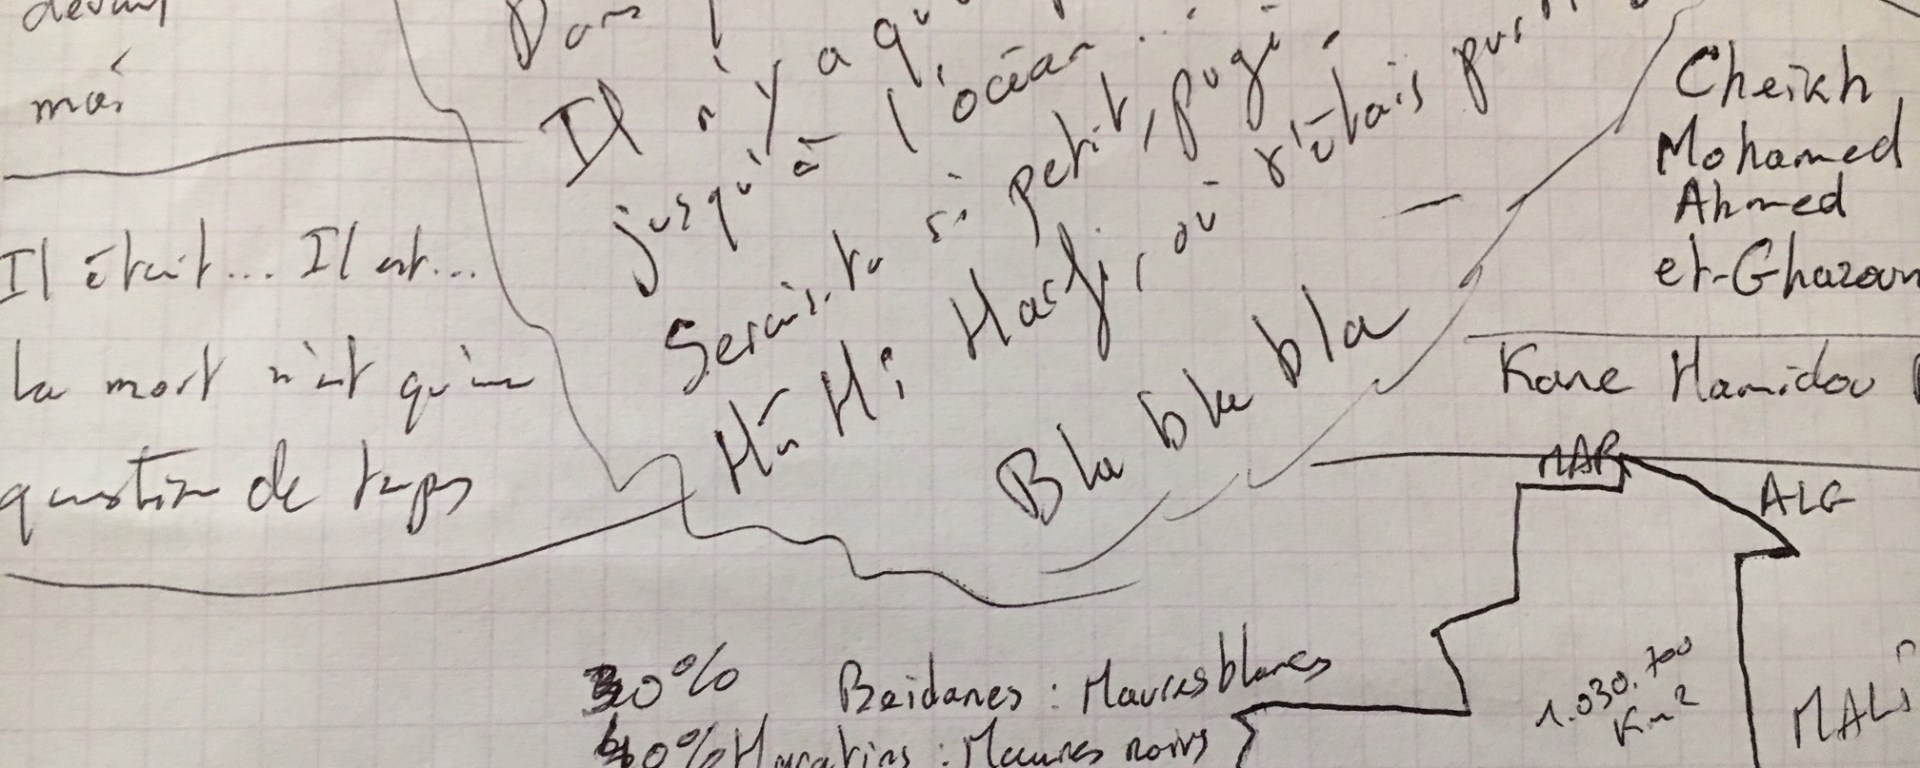 moi
Il était... Il est...
la mort n'est qu'une
question de temps
Dans
Il n'y a qu'
jusqu'à l'océan...
Serais-tu si petit,
Ha Hi où n'étais pas
Bla bla bla
Cheikh
Mohamed
Ahmed
el-Ghazoun
Kane Hamidou
MAR
ALG
MALI
1.030.700
Km2
30% Beidanes : Maures blancs
40% Haratins : Maures noirs